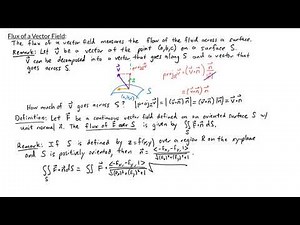 Flux of a Vector Field:
The flux of a vector field measures the flow of the fluid across a surface.
Remark: Let v⃗ be a vector at the point (a,b,c) on a surface S.
v⃗ can be decomposed into a vector that goes along S and a vector that
goes across S.
(a,b,c)
How much of v⃗ goes across S? |proj v⃗| = |(v⃗·n⃗)n⃗| = |v⃗·n⃗||n⃗| = v⃗·n⃗
Definition: Let F⃗ be a continuous vector field defined on an oriented surface S w/
unit normal n⃗. The flux of F⃗ across S is given by ∬_S F⃗·n⃗ dS.
Remark: If S is defined by z=f(x,y) over a region R on the xy-plane
and S is positively oriented, then n⃗ = <-fx,-fy,1>/√((fx)²+(fy)²+1)
∬_S F⃗·n⃗ dS = ∬ F⃗· <-fx,-fy,1>/√((fx)²+(fy)²+1) √